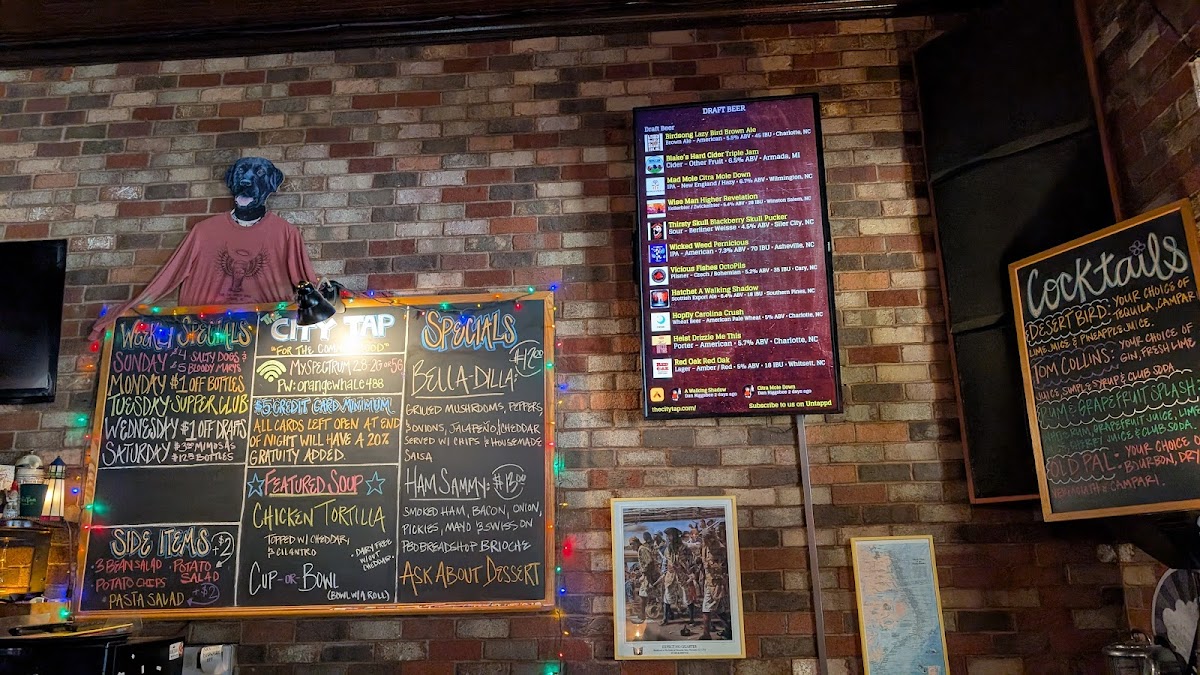 Weekly Specials
Sunday $4 Salty Dogs &
$5 Bloody Marys
Monday $1 off Bottles
Tuesday Supper Club
Wednesday $1 off Drafts
Saturday $3 Mimosas
$12 Bottles
Side Items +$2
3 Bean Salad · Potato Salad
Potato Chips
Pasta Salad +$2
City Tap
"For the Common Good"
MySpectrum 2.5 2G or 5G
PW: orangewhale488
$5 Credit Card Minimum
All cards left open at end
of night will have a 20%
gratuity added.
Featured Soup
Chicken Tortilla
Topped w/ Cheddar,
& Cilantro
· Dairy Free
w/out
Cheddar ·
Cup -or- Bowl
(Bowl w/ a Roll)
Specials
Bella-Dilla:
Grilled Mushrooms, Peppers,
& Onions, Jalapeño/Cheddar
Served w/ Chips & Housemade
Salsa
Ham Sammy: $13.00
Smoked Ham, Bacon, Onion,
Pickles, Mayo & Swiss on
Brioche
Ask About Dessert
DRAFT BEER
Draft Beer
Birdsong Lazy Bird Brown Ale
Brown Ale - American • 5.5% ABV • 45 IBU • Charlotte, NC
Blake's Hard Cider Triple Jam
Cider - Other Fruit • 6.5% ABV • Armada, MI
Mad Mole Citra Mole Down
IPA - New England / Hazy • 6.7% ABV • Wilmington, NC
Wise Man Higher Revelation
Kellerbier / Zwickelbier • 5.4% ABV • 28 IBU • Winston Salem, NC
Thirsty Skull Blackberry Skull Pucker
Sour - Berliner Weisse • 4.5% ABV • Siler City, NC
Wicked Weed Pernicious
IPA - American • 7.3% ABV • 70 IBU • Asheville, NC
Vicious Fishes OctoPils
Pilsner - Czech / Bohemian • 5.2% ABV • 35 IBU • Cary, NC
Hatchet A Walking Shadow
Scottish Export Ale • 5.4% ABV • 18 IBU • Southern Pines, NC
Hopfly Carolina Crush
Wheat Beer - American Pale Wheat • 5% ABV • Charlotte, NC
Heist Drizzle Me This
Porter - American • 5.7% ABV • Charlotte, NC
Red Oak Red Oak
Lager - Amber / Red • 5% ABV • 18 IBU • Whitsett, NC
A Walking Shadow
Dan Higgabon 2 days ago
Citra Mole Down
Dan Higgabon 2 days ago
thecitytap.com/
Subscribe to us on Untappd
Cocktails
Desert Bird: Your choice of
Tequila, Campari
Lime Juice & Pineapple Juice
Tom Collins: Your choice of
Gin, Fresh Lime
Juice, Simple Syrup & Club Soda
Rum & Grapefruit Splash
Rum, Grapefruit Juice, Lime
Juice & Club Soda
Old Pal - Your choice of
Bourbon, Dry
Vermouth & Campari.